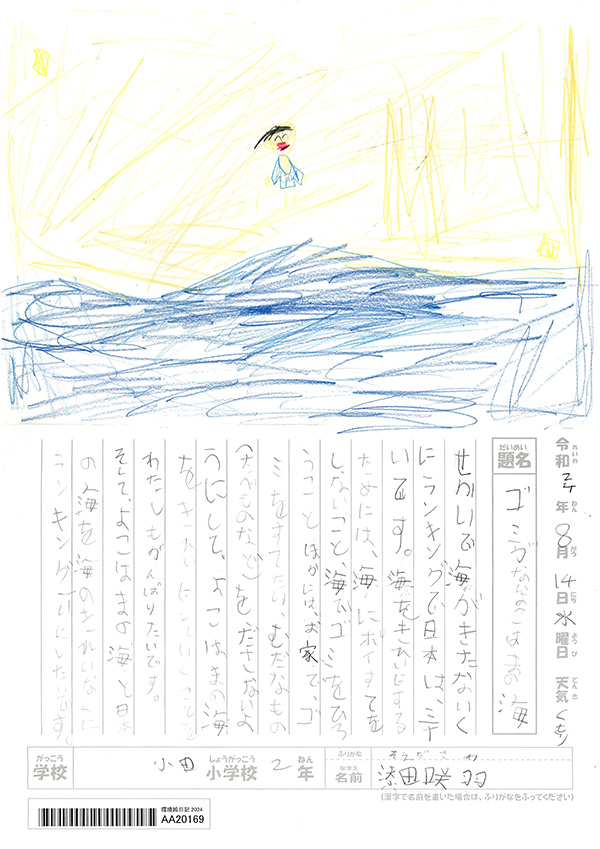 令和 年 8月 14日 水曜日 天気 くもり
れいわ ねん がつ にち ようび てんき
だいめい
題名 ゴミがないよこはまの海
せかいで海がきたないく
にランキングで日本は、
いです。海をきれいにする
ためには、海にポイすてを
しないこと海でゴミをひろ
うことほかには、お家で、ゴ
ミをすてたり、むだなもの
(たべものなど)を、ださないよ
うにして、よこはまの海
をきれいにしていくことを
わたしもがんばりたいです。
そして、よこはまの海と日本
の海を海のきれいなくに
ランキング一いにしたいです。
がっこう しょうがっこう ねん
学校 小田 小学校 2 年
ふりがな そえだ さわ
なまえ
名前 添田咲羽
(漢字で名前を書いた場合は、ふりがなをふってください)
環境絵日記2024
AA20169